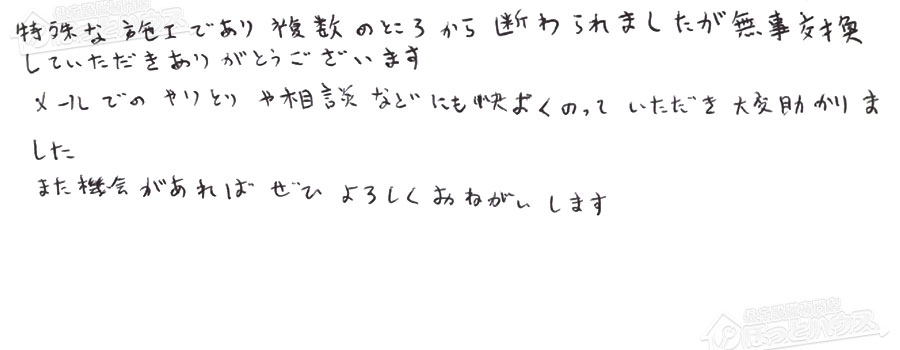 特殊な施工であり複数のところから断わられましたが無事交換
していただきありがとうございます
メールでのやりとりや相談などにも快よくのっていただき大変助かりま
した
また機会があればぜひよろしくおねがいします
住宅設備専門店
ほっとハウス